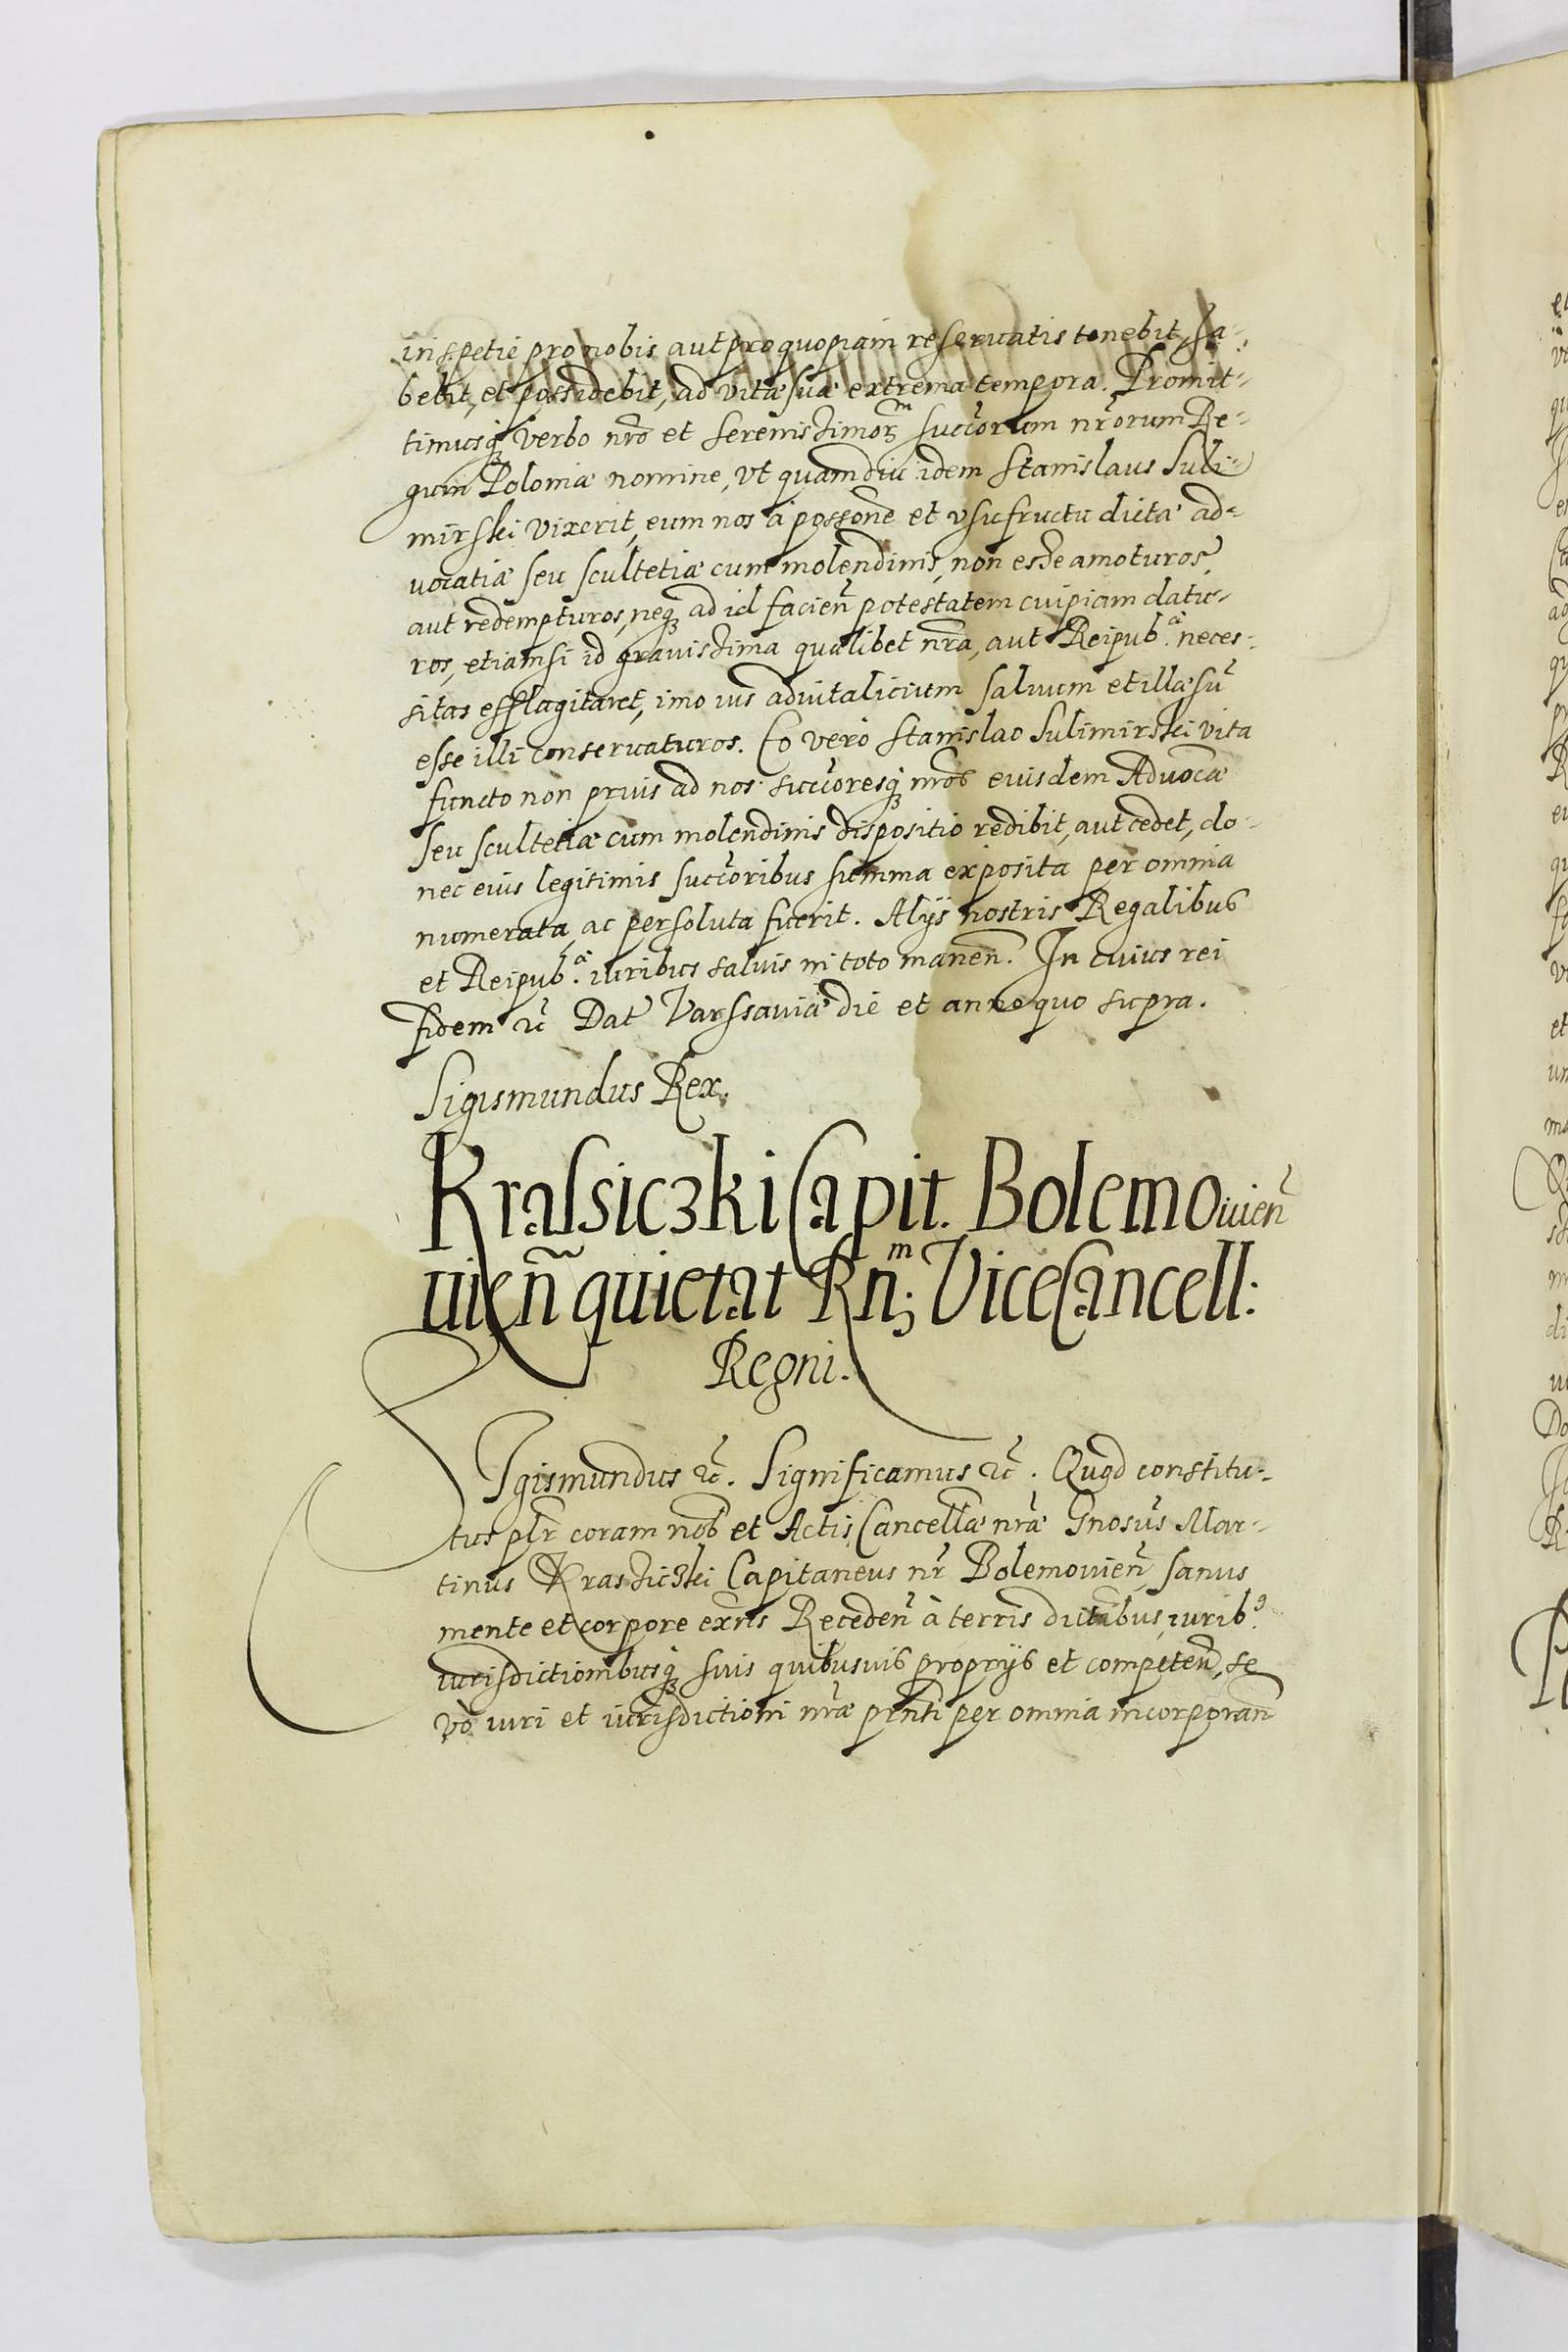 in spetie pro nobis aut pro quopiam reseruatis tenebit, ha-
bebit, et possidebit, ad vitæ suæ extrema tempora. Promit-
timusq́ꝫ verbo nr̃o et serenissimor̃ᵐ succ̃orum nr̃orum Re-
gum Poloniæ nomine, vt quamdiu idem Stanislaus Suli-
mirski vixerit, eum nos à poss̃one et vsufructu dictæ ad-
uocatiæ seu scultetiæ cum molendinis, non esse amoturos
aut redempturos, neq́ꝫ ad id facien̄ potestatem cuipiam datu-
ros, etiamsi id grauissima quælibet nr̃a, aut Reipub.ᵃᵉ neces-
sitas efflagitaret, imo ius aduitalicium saluum et illæsū
esse illi conseruaturos. Eo vero Stanislao Sulimirski vita
functo non prius ad nos succ̃oresq́ꝫ nr̃os eiusdem Aduocæ
seu scultetiæ cum molendinis dispositio redibit, aut cedet, do-
nec eius legitimis succ̃oribus summa exposita per omnia
numerata, ac persoluta fuerit. Alijs nostris Regalibus
et Reipub.ᵃᵉ iuribus saluis in toto manen̄. In cuius rei
fidem ꝛc̃ Dat̃ Varssauiæ die et anno quo supra.
Sigismundus Rex.
Krassiczki Capit. Bolemouien̄
uien̄ quietat Rn̄;ᵐ ViceCancell:
Regni.
Sigismundus ꝛc̃. Significamus ꝛc̃. Quod constitu-
tus plr̃ coram nob̃ et Actis Cancellæ nr̃æ Gnosus Mar-
tinus Krassiczki Capitaneus nr̃ Bolemouien̄, sanus
mente et corpore exn̄s Receden̄ à terris dict̃ibus, iurib⁹.
iurisdictionibusq́ꝫ suis quibusuis proprijs et competen̄, se
vò iuri et iurisdictioni nr̃æ pn̄ti per omnia incorporan̄